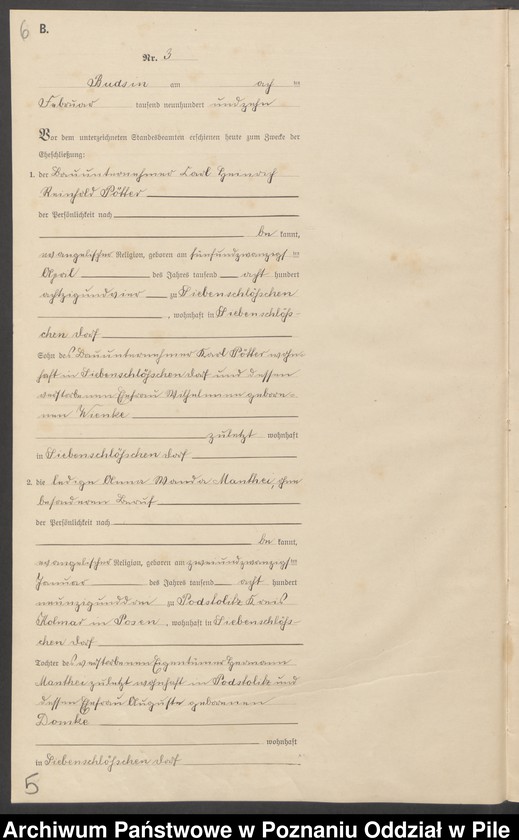 6 B.
Nr. 3
Budsin am acht ten
Februar tausend neunhundert undzehn
Vor dem unterzeichneten Standesbeamten erschienen heute zum Zwecke der
Eheschließung:
1. der Bauunternehmer Carl Heinrich
Reinhold Pötter
der Persönlichkeit nach
be kannt,
evangelischer Religion, geboren am fünfundzwanzigsten
April des Jahres tausend acht hundert
achtzigundvier zu Siebenschlößchen
, wohnhaft in Siebenschlöß-
chen dorf
Sohn des Bauunternehmer Karl Pötter wohn-
haft in Siebenschlößchen dorf und dessen
verstorbenen Ehefrau Wilhelmine gebore-
nen Wienke
zuletzt wohnhaft
in Siebenschlößchen dorf
2. die ledige Anna Wanda Manthei, ohne
besonderen Beruf
der Persönlichkeit nach
be kannt,
evangelischer Religion, geboren am zweiundzwanzigsten
Januar des Jahres tausend acht hundert
neunzigunddrei zu Podstolitz Kreis
Kolmar in Posen, wohnhaft in Siebenschlöß-
chen dorf
Tochter des verstorbenen Eigentümer Hermann
Manthei zuletzt wohnhaft in Podstolitz und
dessen Ehefrau Auguste geborenen
Domke
wohnhaft
in Siebenschlößchen dorf
5
Archiwum Państwowe w Poznaniu Oddział w Pile